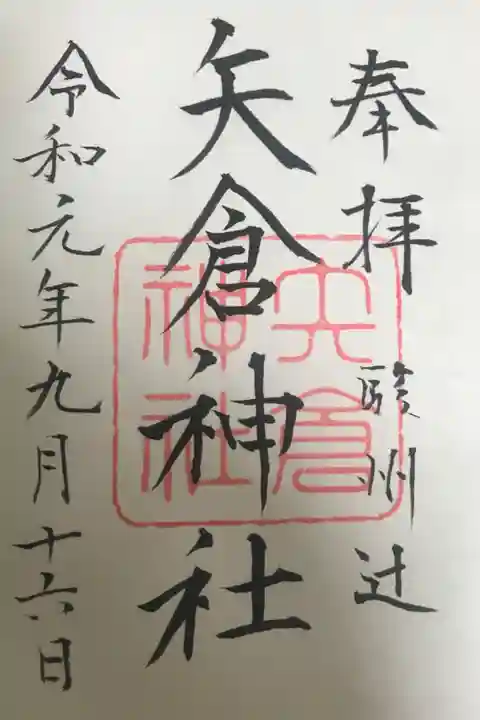 奉拝 駿州辻
矢倉神社
矢倉神社
令和元年九月十六日